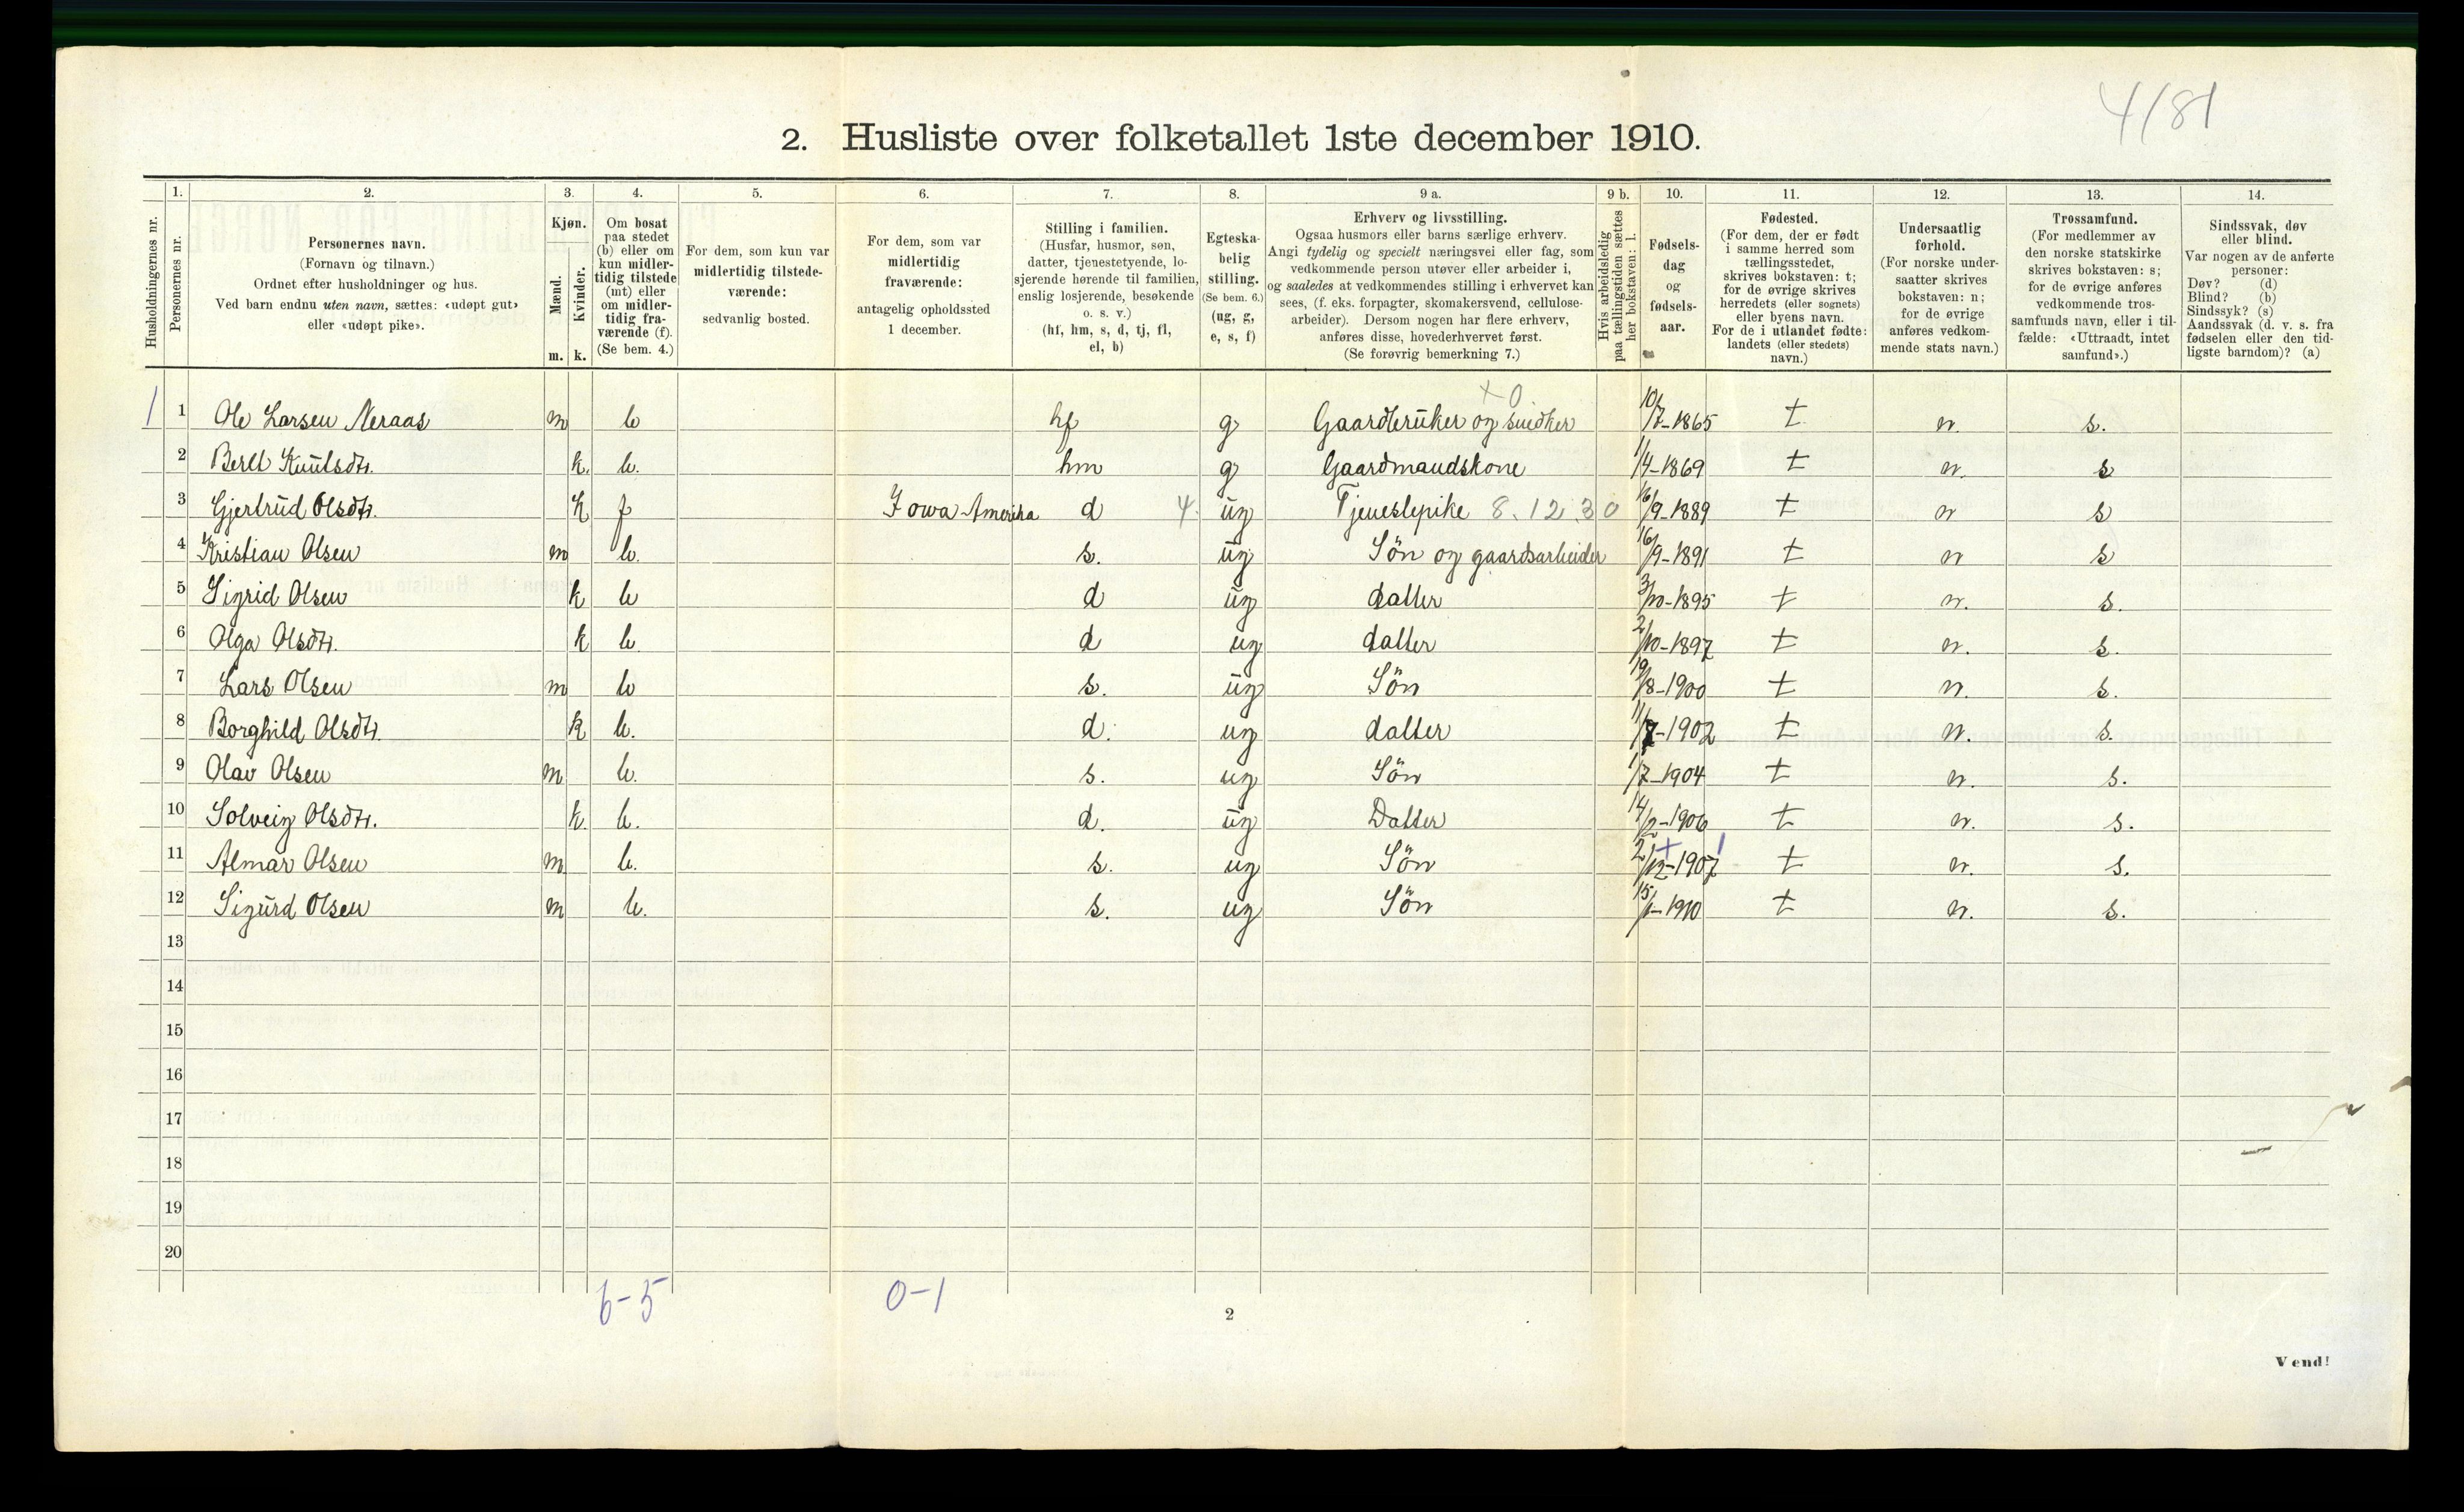 4/81
2. Husliste over folketallet 1ste december 1910.
Husholdningernes nr.
1.
Personernes nr.
2.
Personernes navn.
(Fornavn og tilnavn.)
Ordnet efter husholdninger og hus.
Ved barn endnu uten navn, sættes: «udøpt gut»
eller «udøpt pike».
3.
Kjøn.
Mænd.
Kvinder.
m. k.
4.
Om bosat
paa stedet
(b) eller om
kun midler-
tidig tilstede
(mt) eller
om midler-
tidig fra-
værende (f).
(Se bem. 4.)
5.
For dem, som kun var
midlertidig tilstede-
værende:
sedvanlig bosted.
6.
For dem, som var
midlertidig
fraværende:
antagelig opholdssted
1 december.
7.
Stilling i familien.
(Husfar, husmor, søn,
datter, tjenestetyende, lo-
sjerende hørende til familien,
enslig losjerende, besøkende
o. s. v.)
(hf, hm, s, d, tj, fl,
el, b)
8.
Egteska-
belig
stilling.
(Se bem. 6.)
(ug, g,
e, s, f)
9 a.
Erhverv og livsstilling.
Ogsaa husmors eller barns særlige erhverv.
Angi tydelig og specielt næringsvei eller fag, som
vedkommende person utøver eller arbeider i,
og saaledes at vedkommendes stilling i erhvervet kan
sees, (f. eks. forpagter, skomakersvend, cellulose-
arbeider). Dersom nogen har flere erhverv,
anføres disse, hovederhvervet først.
(Se forøvrig bemerkning 7.)
9 b.
Hvis arbeidsledig
paa tællingstiden sættes
her bokstaven: l.
10.
Fødsels-
dag
og
fødsels-
aar.
11.
Fødested.
(For dem, der er født
i samme herred som
tællingsstedet,
skrives bokstaven: t;
for de øvrige skrives
herredets (eller sognets)
eller byens navn.
For de i utlandet fødte:
landets (eller stedets)
navn.)
12.
Undersaatlig
forhold.
(For norske under-
saatter skrives
bokstaven: n;
for de øvrige
anføres vedkom-
mende stats navn.)
13.
Trossamfund.
(For medlemmer av
den norske statskirke
skrives bokstaven: s;
for de øvrige anføres
vedkommende tros-
samfunds navn, eller i til-
fælde: «Uttraadt, intet
samfund».)
14.
Sindssvak, døv
eller blind.
Var nogen av de anførte
personer:
Døv? (d)
Blind? (b)
Sindssyk? (s)
Aandssvak (d. v. s. fra
fødselen eller den tid-
ligste barndom)? (a)
+ 0
1 1 Ole Larsen Neraas m b hf g Gaardbruker og snedker 10/7-1865 t n. s.
2 Berit Knutsdtr. k. b. hm g Gaardmandskone 1/4-1869 t n. s
3 Gjertrud Olsdtr. k f Iowa Amerika d 4 ug Tjenestepike 8.12.30 16/9-1889 t n s
4 Kristian Olsen m b. s. ug Sön og gaardsarbeider 16/9-1891 t n s
5 Sigrid Olsen k b d ug datter 3/10-1895 t n. s.
6 Olga Olsdtr. k b d ug datter 2/10-1897 t n. s.
7 Lars Olsen m b s. ug Sön 19/8-1900 t n. s.
8 Borghild Olsdtr. k b. d. ug datter 11/7-1902 t n. s.
9 Olav Olsen m b. s. ug Sön 1/7-1904 t n. s.
10 Solveig Olsdtr. k. b. d. ug Datter 14/2-1906 t n. s.
11 Almar Olsen m b. s. ug Sön 2/12-1907 t n. s.
12 Sigurd Olsen m b. s. ug Sön 15/1-1910 t n. s.
13
14
15
16
17
18
19
20
6-5 0-1
2
Vend!